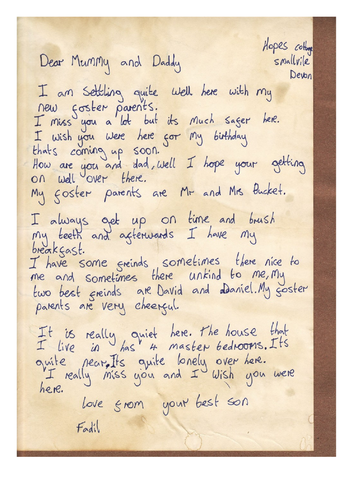 Hopes cottag
smallvile
Devon
Dear Mummy and Daddy
I am settling quite well here with my
new foster parents.
I miss you a lot but its much safer here.
I wish you were here for my birthday
thats coming up soon.
How are you and dad, well I hope your getting
on well over there.
My foster parents are Mr and Mrs Bucket.
I always get up on time and brush
my teeth and afterwards I have my
breakfast.
I have some freinds sometimes there nice to
me and sometimes there unkind to me, my
two best freinds are David and Daniel. My foster
parents are very cheerful.
It is really quiet here. The house that
I live in has 4 master bedrooms. Its
quite near. Its quite lonely over here.
I really miss you and I wish you were
here.
Love from your best son
Fadil